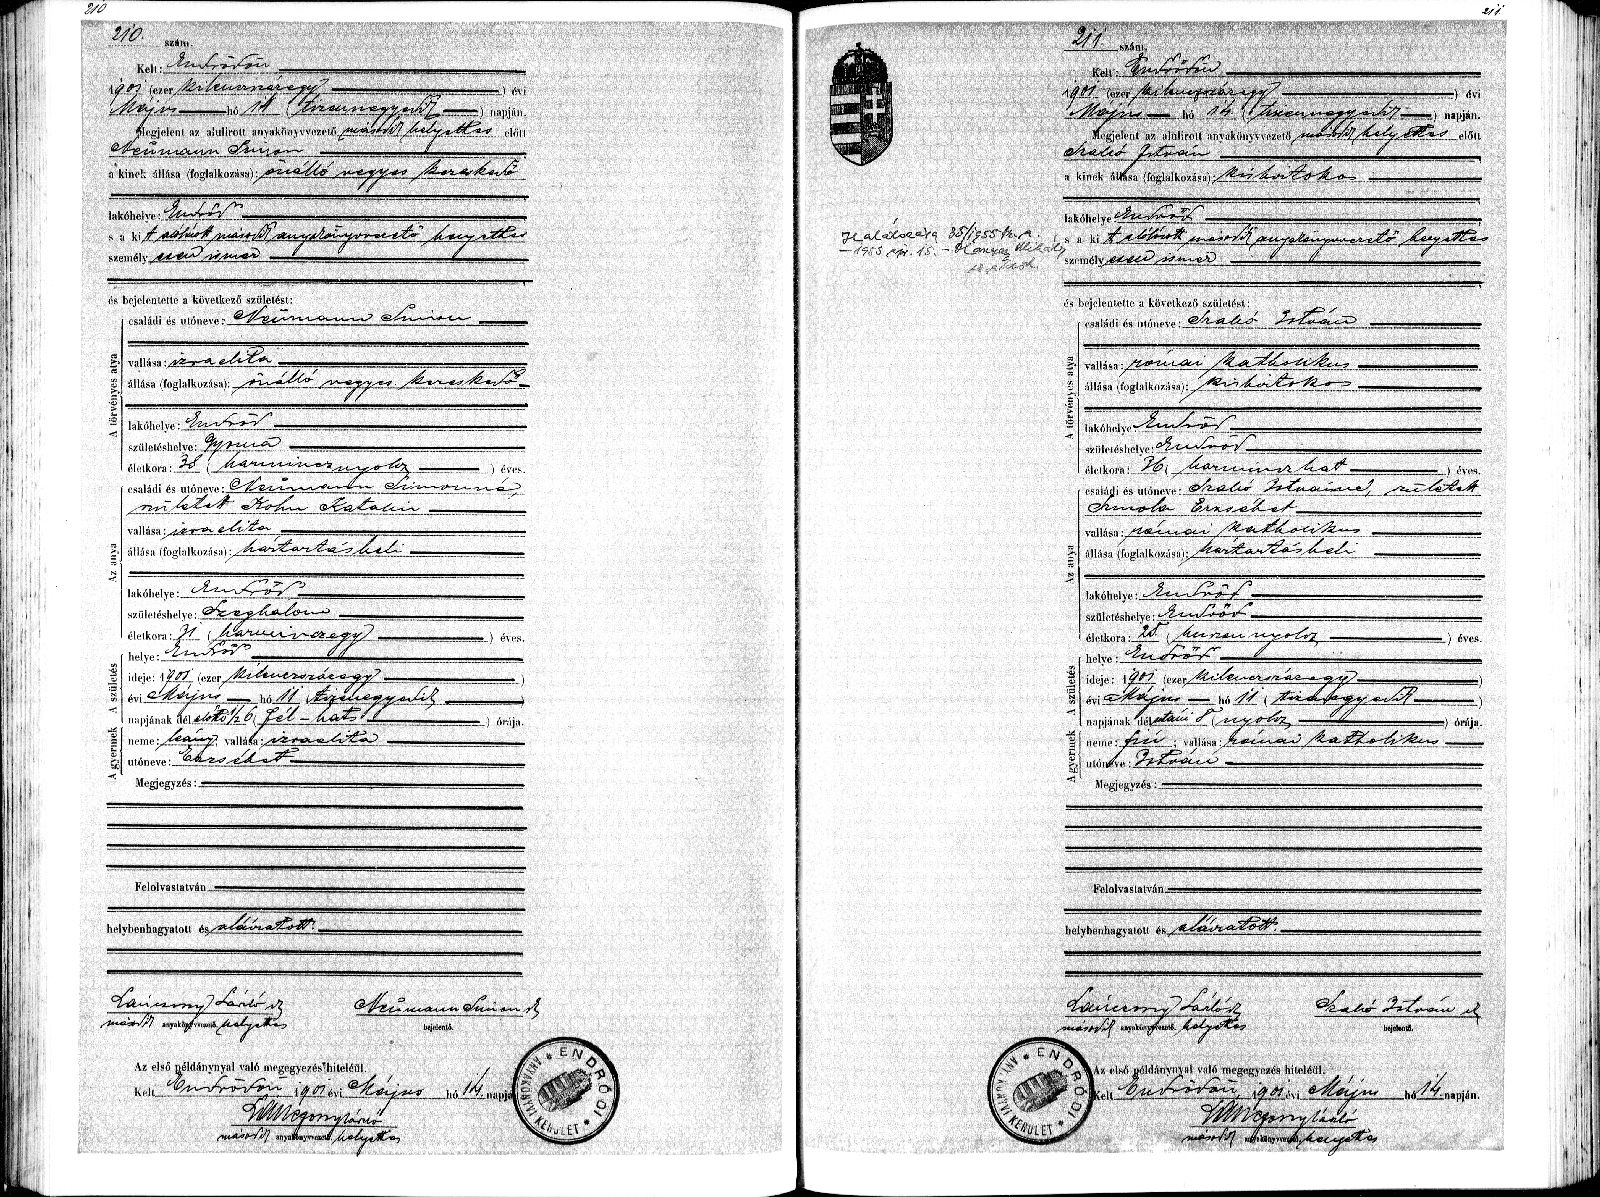 210
210 szám.
Kelt: Endrődön
1901 (ezer kilenczszázegy) évi
Május hó 14 (tizennegyedik) napján.
Megjelent az alulirott anyakönyvvezető második helyettes előtt
Neümann Simon
a kinek állása (foglalkozása): önálló vegyes kereskedő
lakóhelye: Endrőd
s a kit alólirott második anyakönyvvezető helyettes
személyesen ismer
és bejelentette a következő születést:
A törvényes atya
családi és utóneve: Neümann Simon
vallása: izraelita
állása (foglalkozása): önálló vegyes kereskedő
lakóhelye: Endrőd
születéshelye: Gyoma
életkora: 38 (harmincznyolcz) éves.
Az anya
családi és utóneve: Neümann Simonné,
született Kohn Katalin
vallása: izraelita
állása (foglalkozása): háztartásbeli
lakóhelye: Endrőd
születéshelye: Szeghalom
életkora: 31 (harminczegy) éves.
A születés
helye: Endrőd
ideje: 1901 (ezer kilenczszázegy)
évi Május hó 11 (tizenegyedik)
napjának dél előtti 1/2 6 (fél-hat) órája.
A gyermek
neme: leány; vallása: izraelita
utóneve: Erzsébet
Megjegyzés:
Felolvastatván
helybenhagyatott és aláiratott.
Lánczony László sk
második anyakönyvvezető helyettes
Neümann Simon sk
bejelentő.
Az első példánynyal való megegyezés hiteléül.
Kelt Endrődön 1901 évi Május hó 14 napján.
Lánczony László
második anyakönyvvezető helyettes
ENDRŐDI ANYAKÖNYVI KERÜLET
211
211. szám.
Kelt: Endrődön
1901 (ezer kilenczszázegy) évi
Május hó 14 (tizennegyedik) napján.
Megjelent az alulirott anyakönyvvezető második helyettes előtt
Szabó István
a kinek állása (foglalkozása): kisbirtokos
lakóhelye Endrőd
s a kit alólirott második anyakönyvvezető helyettes
személyesen ismer
és bejelentette a következő születést:
A törvényes atya
családi és utóneve: Szabó István
vallása: római katholikus
állása (foglalkozása): kisbirtokos
lakóhelye Endrőd
születéshelye: Endrőd
életkora: 36 (harminczhat) éves.
Az anya
családi és utóneve: Szabó Istvánné, született
Smola Erzsébet
vallása: római katholikus
állása (foglalkozása): háztartásbeli
lakóhelye: Endrőd
születéshelye: Endrőd
életkora: 28 (huszonnyolcz) éves.
A születés
helye: Endrőd
ideje: 1901 (ezer kilenczszázegy)
évi Május hó 11 (tizenegyedik)
napjának dél utáni 8 (nyolcz) órája.
A gyermek
neme: fiú; vallása: római katholikus
utóneve: István
Megjegyzés:
Felolvastatván
helybenhagyatott és aláiratott.
Lánczony László sk
második anyakönyvvezető helyettes
Szabó István sk
bejelentő.
Az első példánynyal való megegyezés hiteléül.
Kelt Endrődön, 1901 évi Május hó 14 napján.
Lánczony László
második anyakönyvvezető helyettes
ENDRŐDI ANYAKÖNYVI KERÜLET
Halálozása 35/1955
1955 ápr. 15. Mihály